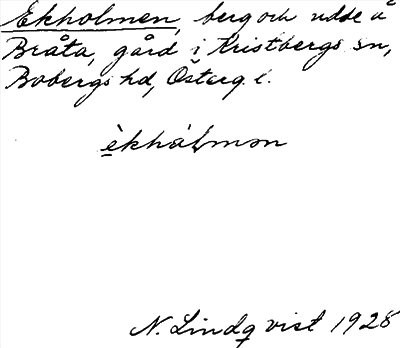 Ekholmen, berg och udde å
Bråta, gård i Kristbergs sn,
Bobergs hd, Österg. l.
èkhálmən
N. Lindqvist 1928